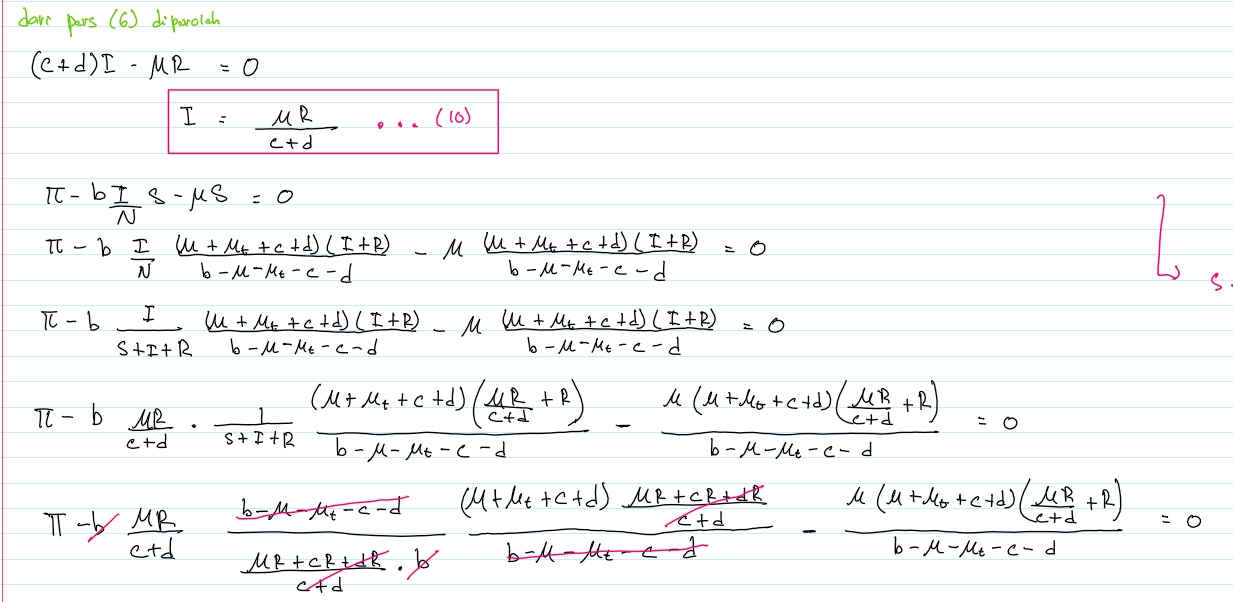 dari pers (6) diperoleh
(c+d)I - μR = 0
I = μR/(c+d) ... (10)
π - b I/N S - μS = 0
π - b I/N (μ+μₜ+c+d)(I+R)/(b-μ-μₜ-c-d) - μ (μ+μₜ+c+d)(I+R)/(b-μ-μₜ-c-d) = 0
S.
π - b I/(S+I+R) (μ+μₜ+c+d)(I+R)/(b-μ-μₜ-c-d) - μ (μ+μₜ+c+d)(I+R)/(b-μ-μₜ-c-d) = 0
π - b μR/(c+d) · 1/(S+I+R) (μ+μₜ+c+d)(μR/(c+d) + R)/(b-μ-μₜ-c-d) - μ(μ+μₜ+c+d)(μR/(c+d) + R)/(b-μ-μₜ-c-d) = 0
π - b μR/(c+d) (b-μ-μₜ-c-d)/((μR+cR+dR)/(c+d) · b) (μ+μₜ+c+d) (μR+cR+dR)/(c+d)/(b-μ-μₜ-c-d) - μ(μ+μₜ+c+d)(μR/(c+d) + R)/(b-μ-μₜ-c-d) = 0